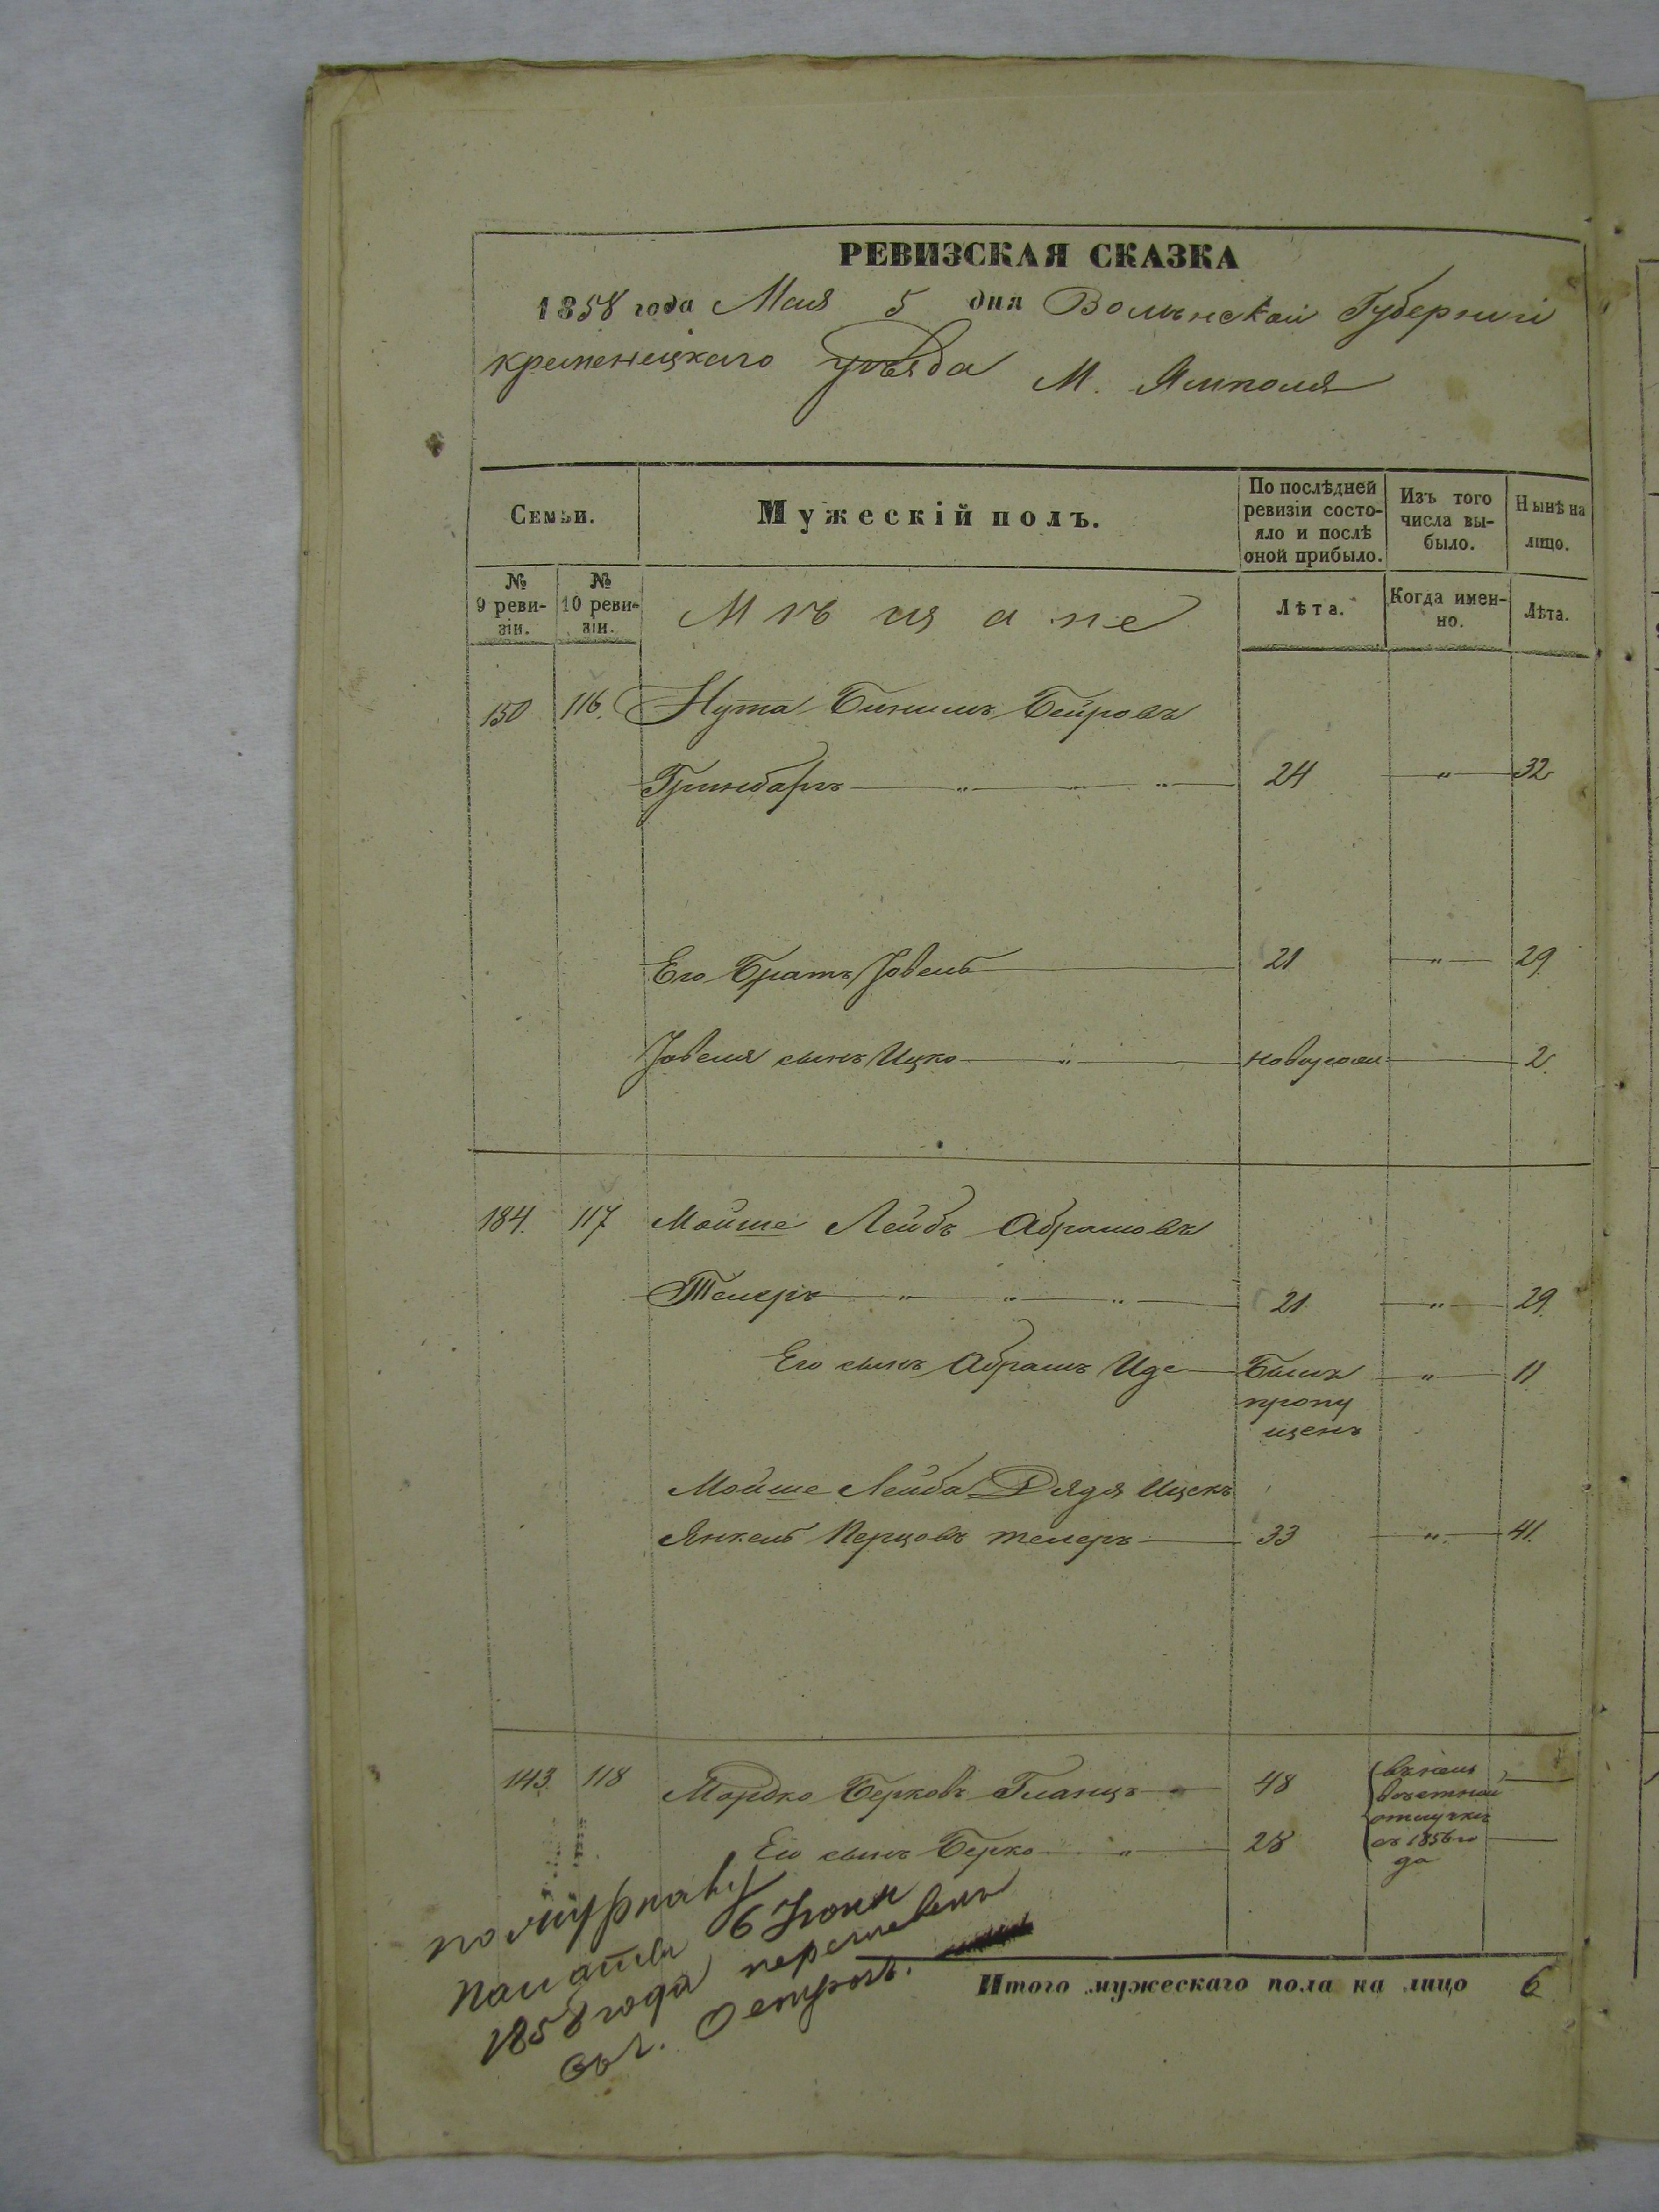 РЕВИЗСКАЯ СКАЗКА
1858 года Мая 5 дня Волынской Губернии
кременецкаго уѣзда М. Ямполя
Семьи.
Мужескій полъ.
По послѣдней ревизіи состо-
яло и послѣ оной прибыло.
Изъ того числа вы-
было.
Нынѣ на лицо.
№ 9 реви-
зіи.
№ 10 реви-
зіи.
Мѣщане
Лѣта.
Когда имен-
но.
Лѣта.
150 116. Нута Беировъ
Гринбаргъ 24 " 32
Его Братъ Іовель 21 " 29
Іовеля сынъ Ицко " 2.
184. 117 Мойше Лейбъ Абрамовъ
Телеръ " " " 21 " 29
Его сынъ Абрамъ Иде Былъ " 11
пропу
щенъ
Мойше Лейба Дядя Ицекъ
Янкель Перцовъ телеръ 33 " 41.
143. 118 Мордко Берковъ Гланцъ 48
отлучкѣ
Его сынъ Берко " 28 съ 1856 го
да
6 Іюня
1858 года
Итого мужескаго пола на лицо 6